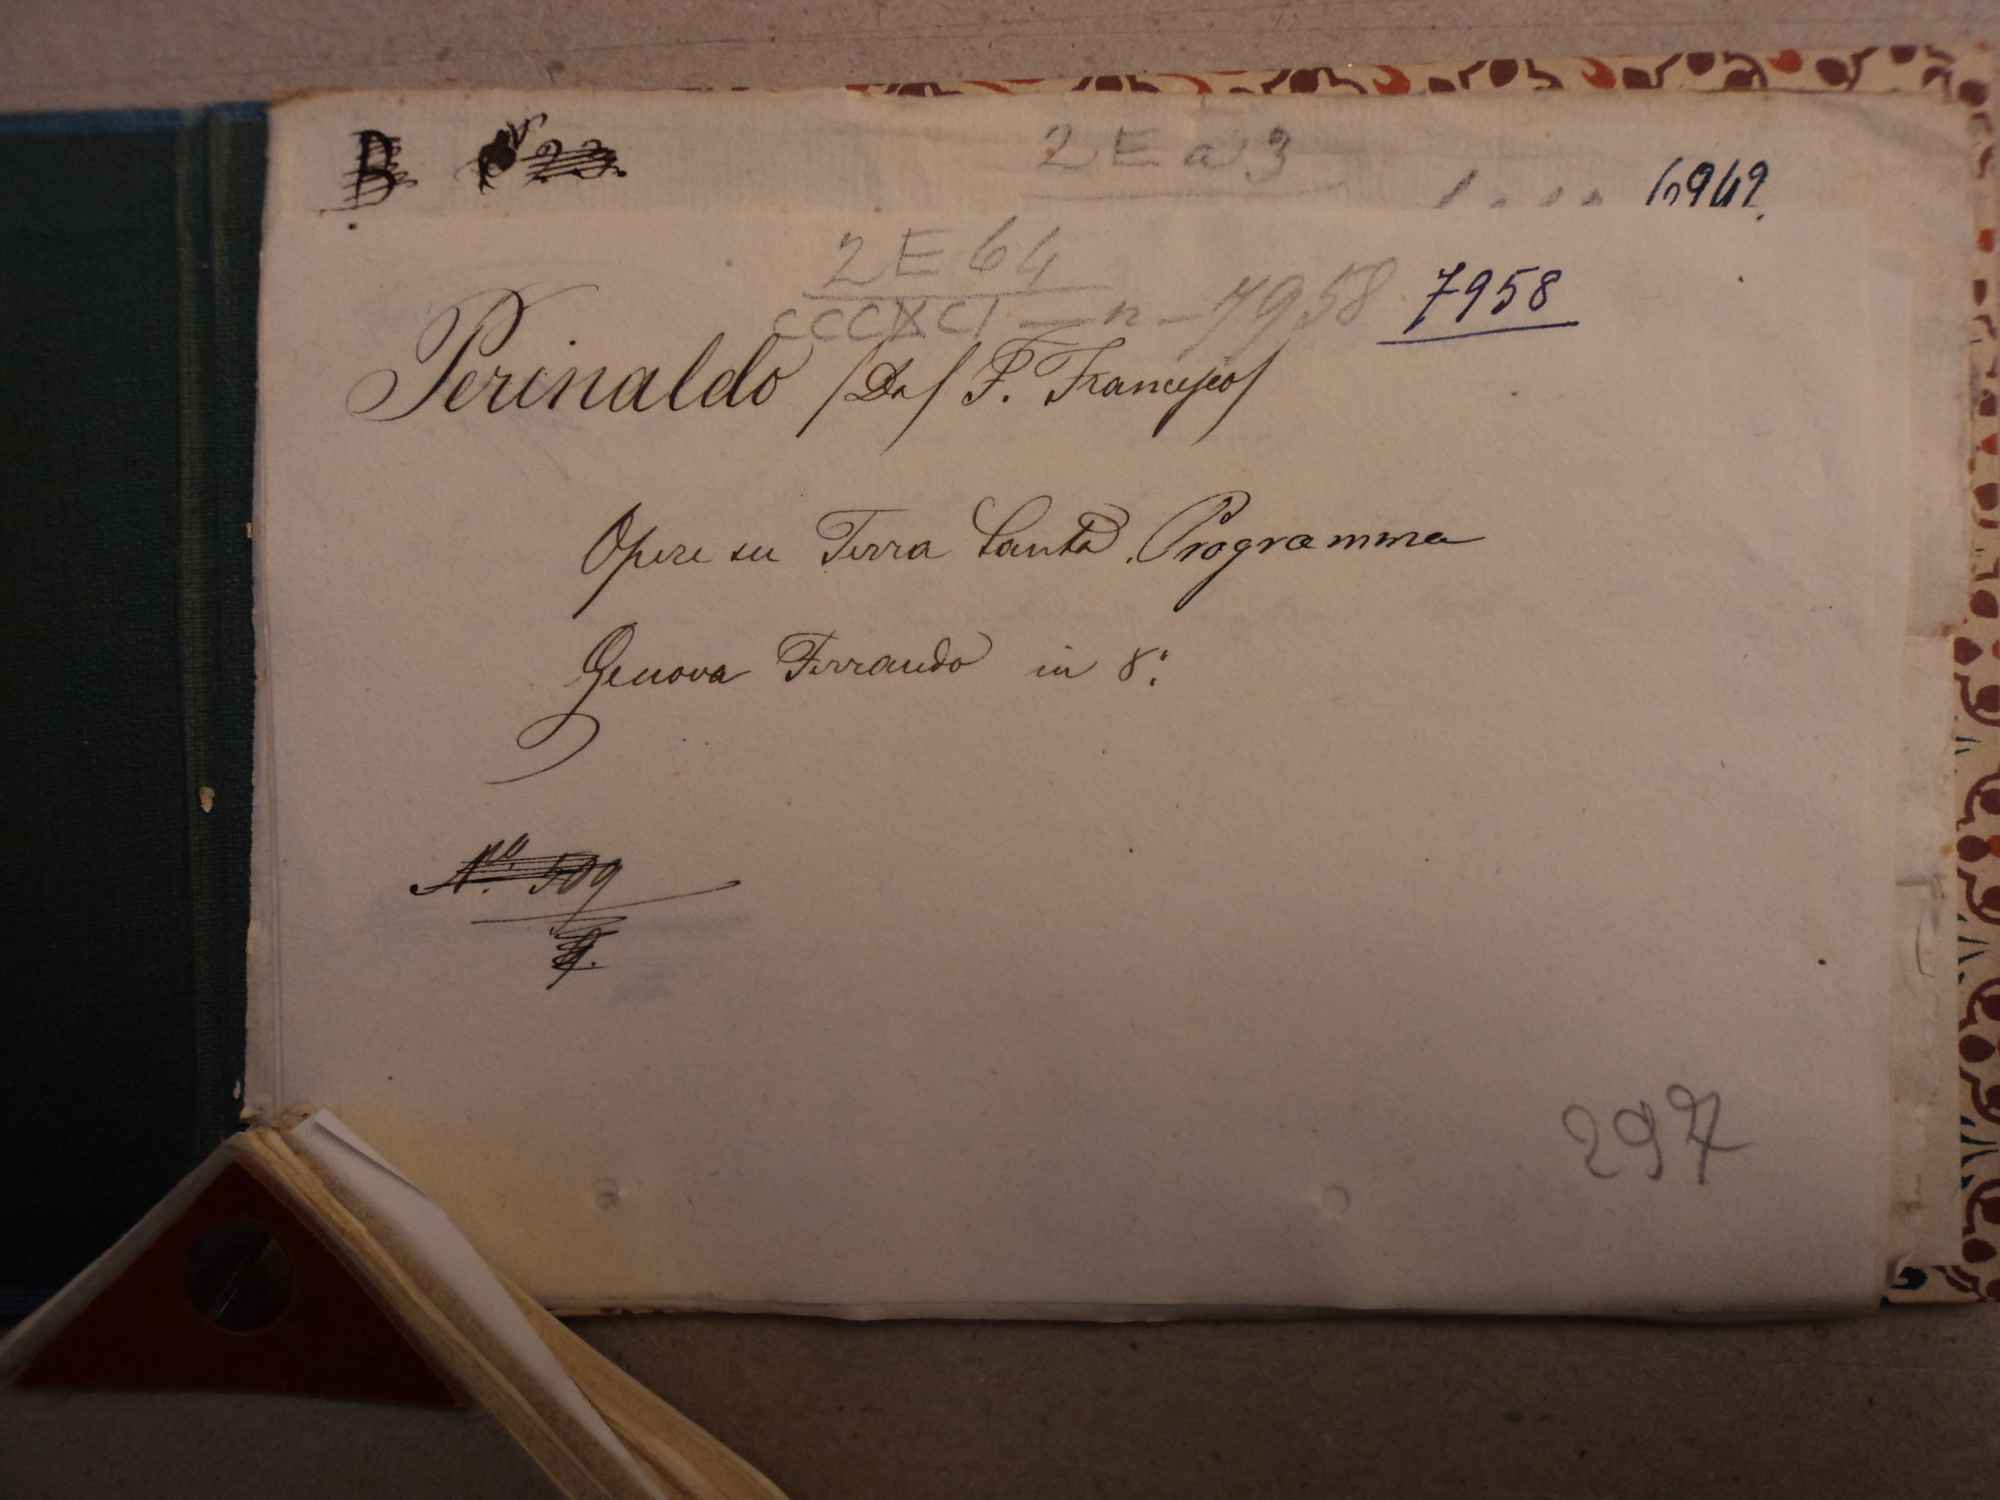 B 23.
2 E a 3
6942.
2 E 64
CCCXCI — n - 7958 7958
Perinaldo /Da/ P. Francesco/
Opere su Terra Santa. Programma
Genova Ferrando in 8.°
N.° 509
297